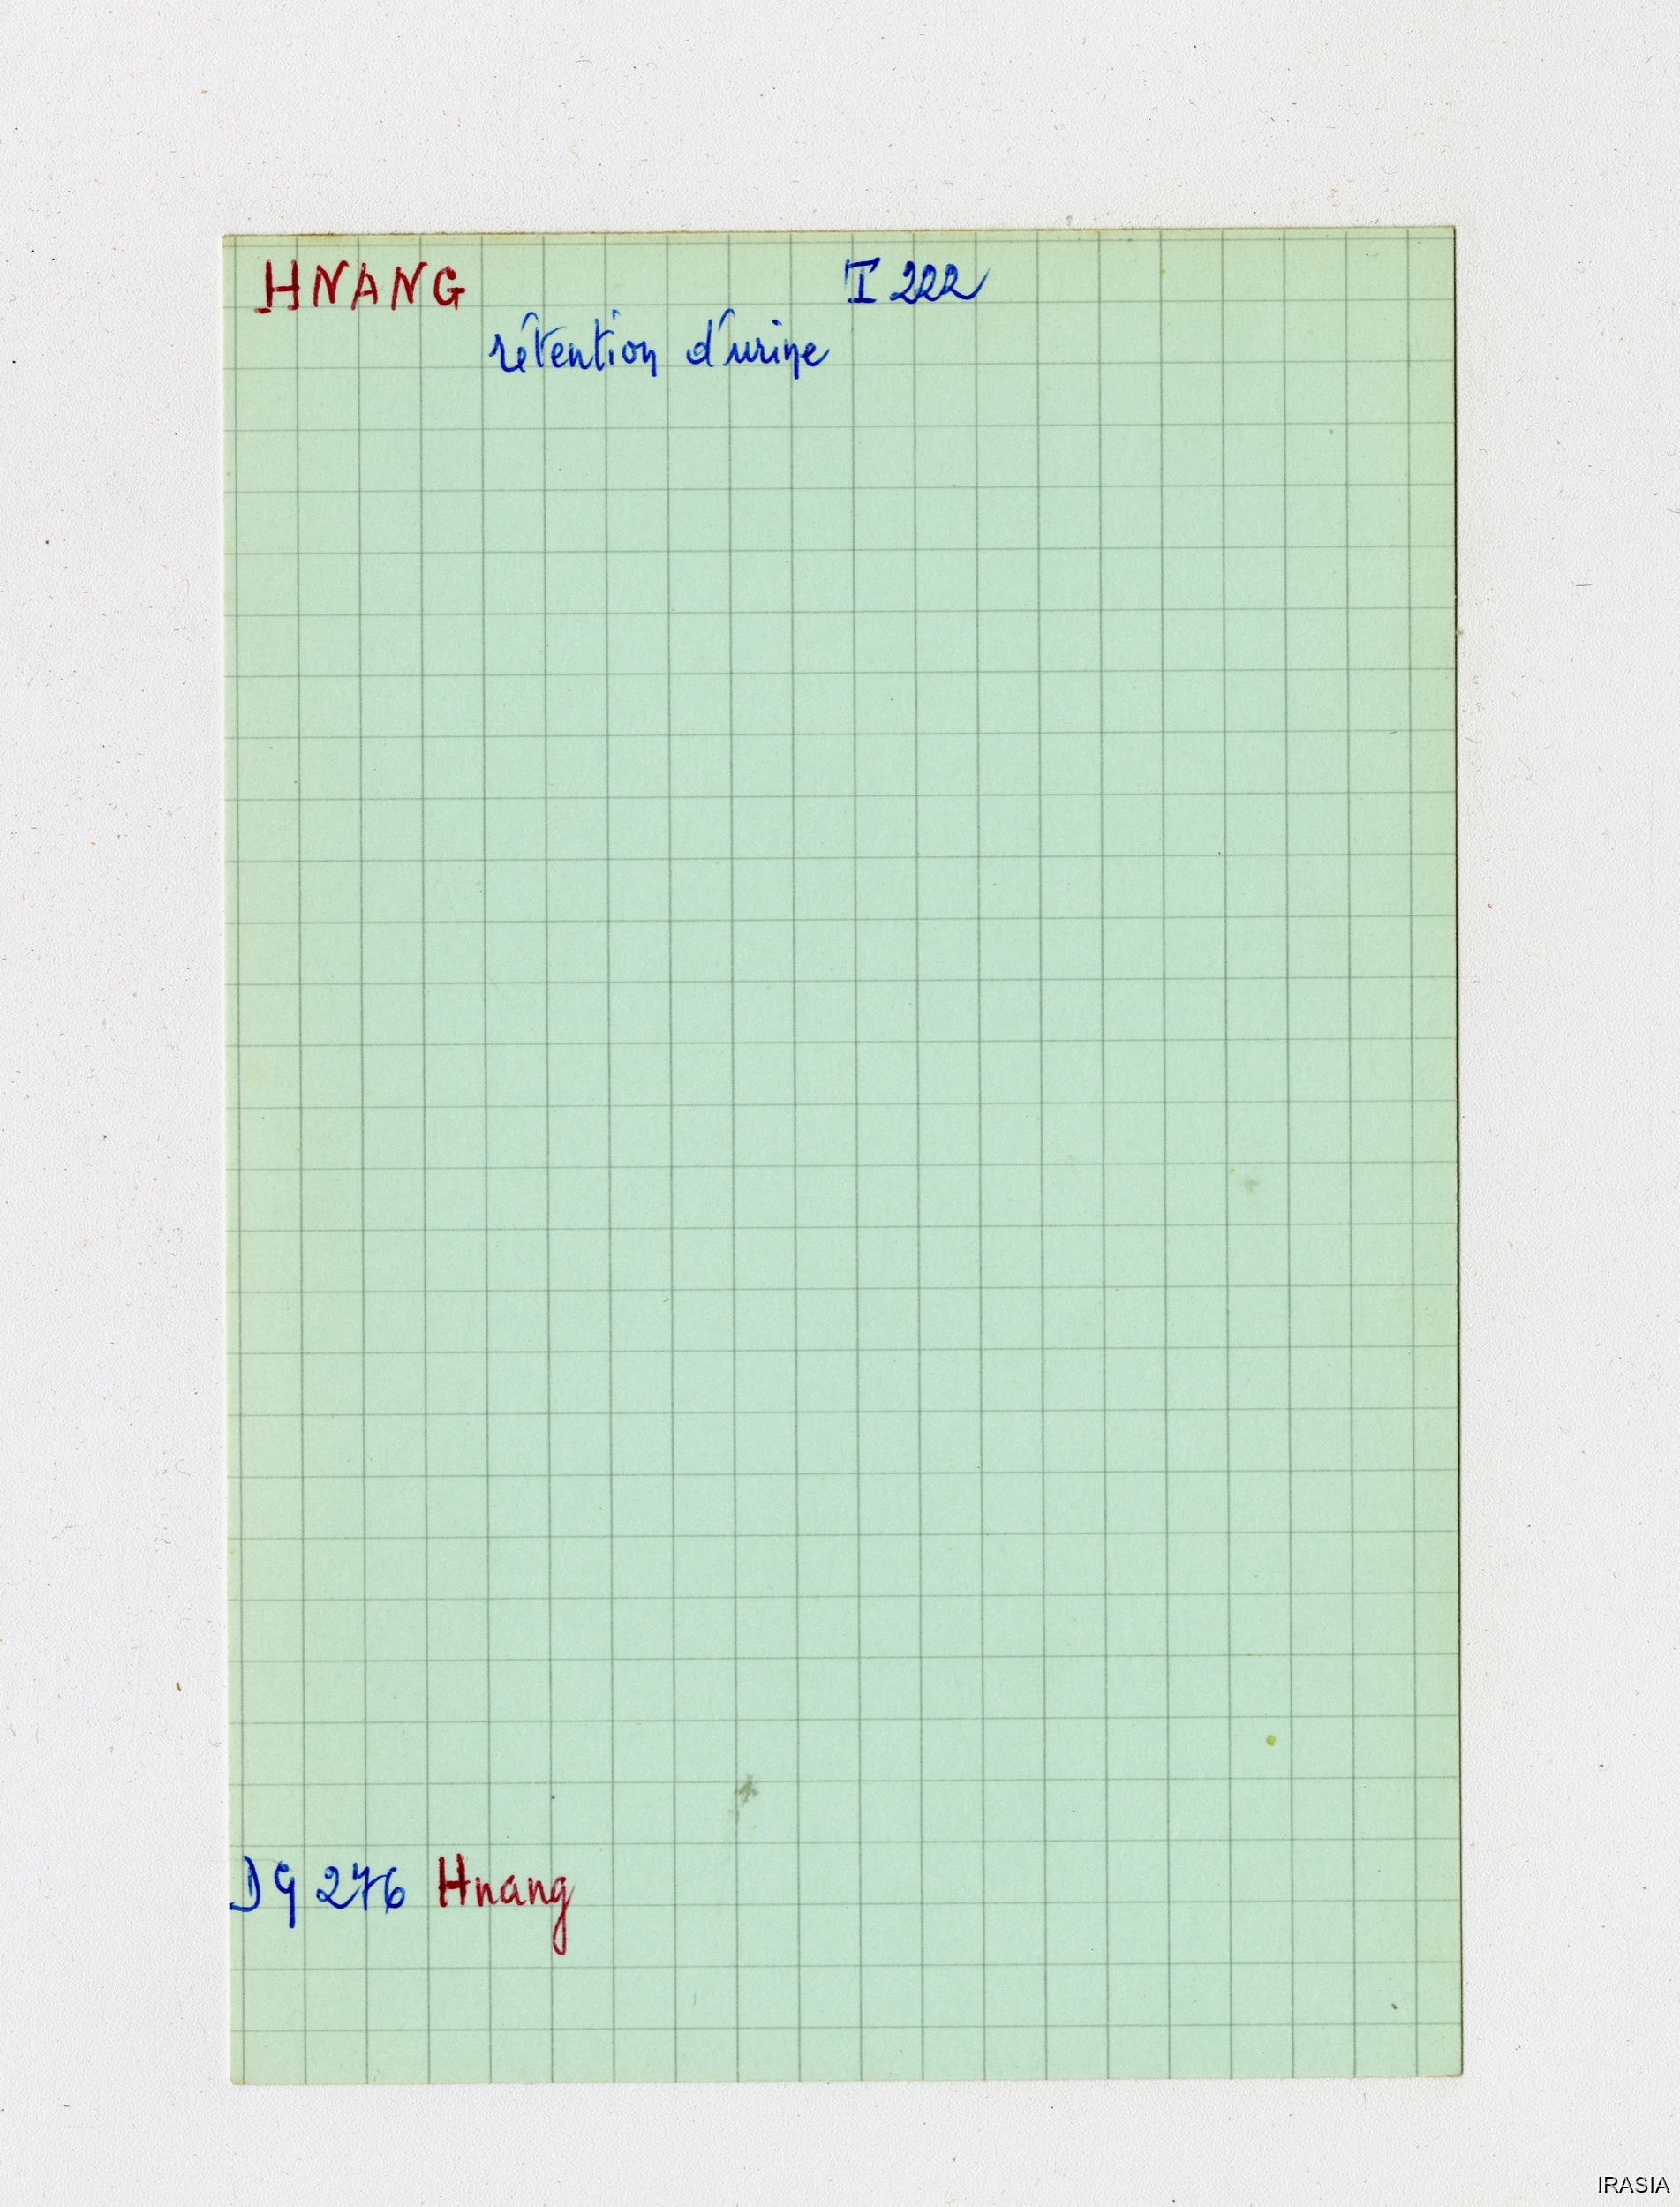 HNANG I 222
rétention d'urine
DG 276 Hnang
IRASIA